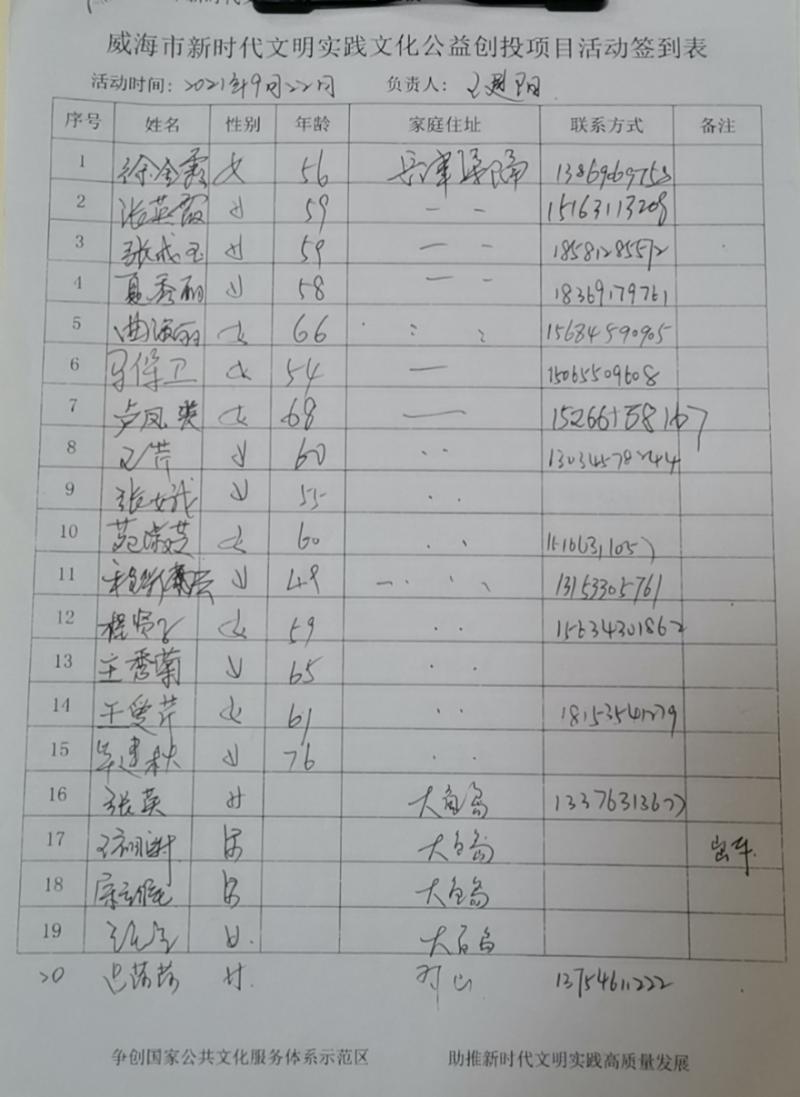 威海市新时代文明实践文化公益创投项目活动签到表
活动时间：2021年9月22日 负责人：
序号 姓名 性别 年龄 家庭住址 联系方式 备注
1 徐金霞 女 56
2 张英霞 女 59 15163113208
3 张成玉 女 59 18581285572
4 夏秀丽 女 58 18369179761
5 曲淑丽 女 66 15684590905
6 马保卫 女 54 15065509608
7 卢凤英 女 68
8 王芹 女 60 13034578244
9 女 55
10 苑淑芝 女 60
11 女 49 13153305761
12 女 59 15634301862
13 王秀菊 女 65
14 王爱芹 女 61 18153541279
15 毕建秋 女 76
16 张英 女 大鱼岛 13376313677
17 男 大鱼岛 出车
18 男 大鱼岛
19 女 大鱼岛
20 女 13754611222
争创国家公共文化服务体系示范区 助推新时代文明实践高质量发展